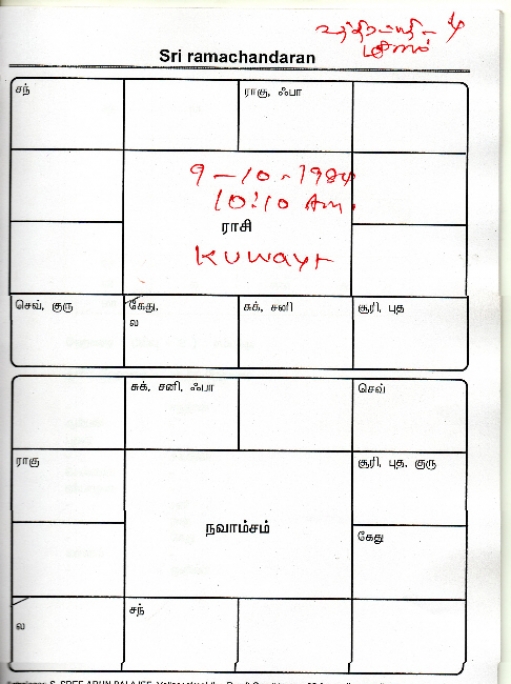 உத்திரட்டாதி - 4
மீனம்
Sri ramachandaran
சந்
ராகு, ஃபா
9-10-1984
10:10 Am.
ராசி
Kuwayt
செவ், குரு
கேது,
ல
சுக், சனி
சூரி, புத
சுக், சனி, ஃபா
செவ்
ராகு
சூரி, புத, குரு
நவாம்சம்
கேது
ல
சந்